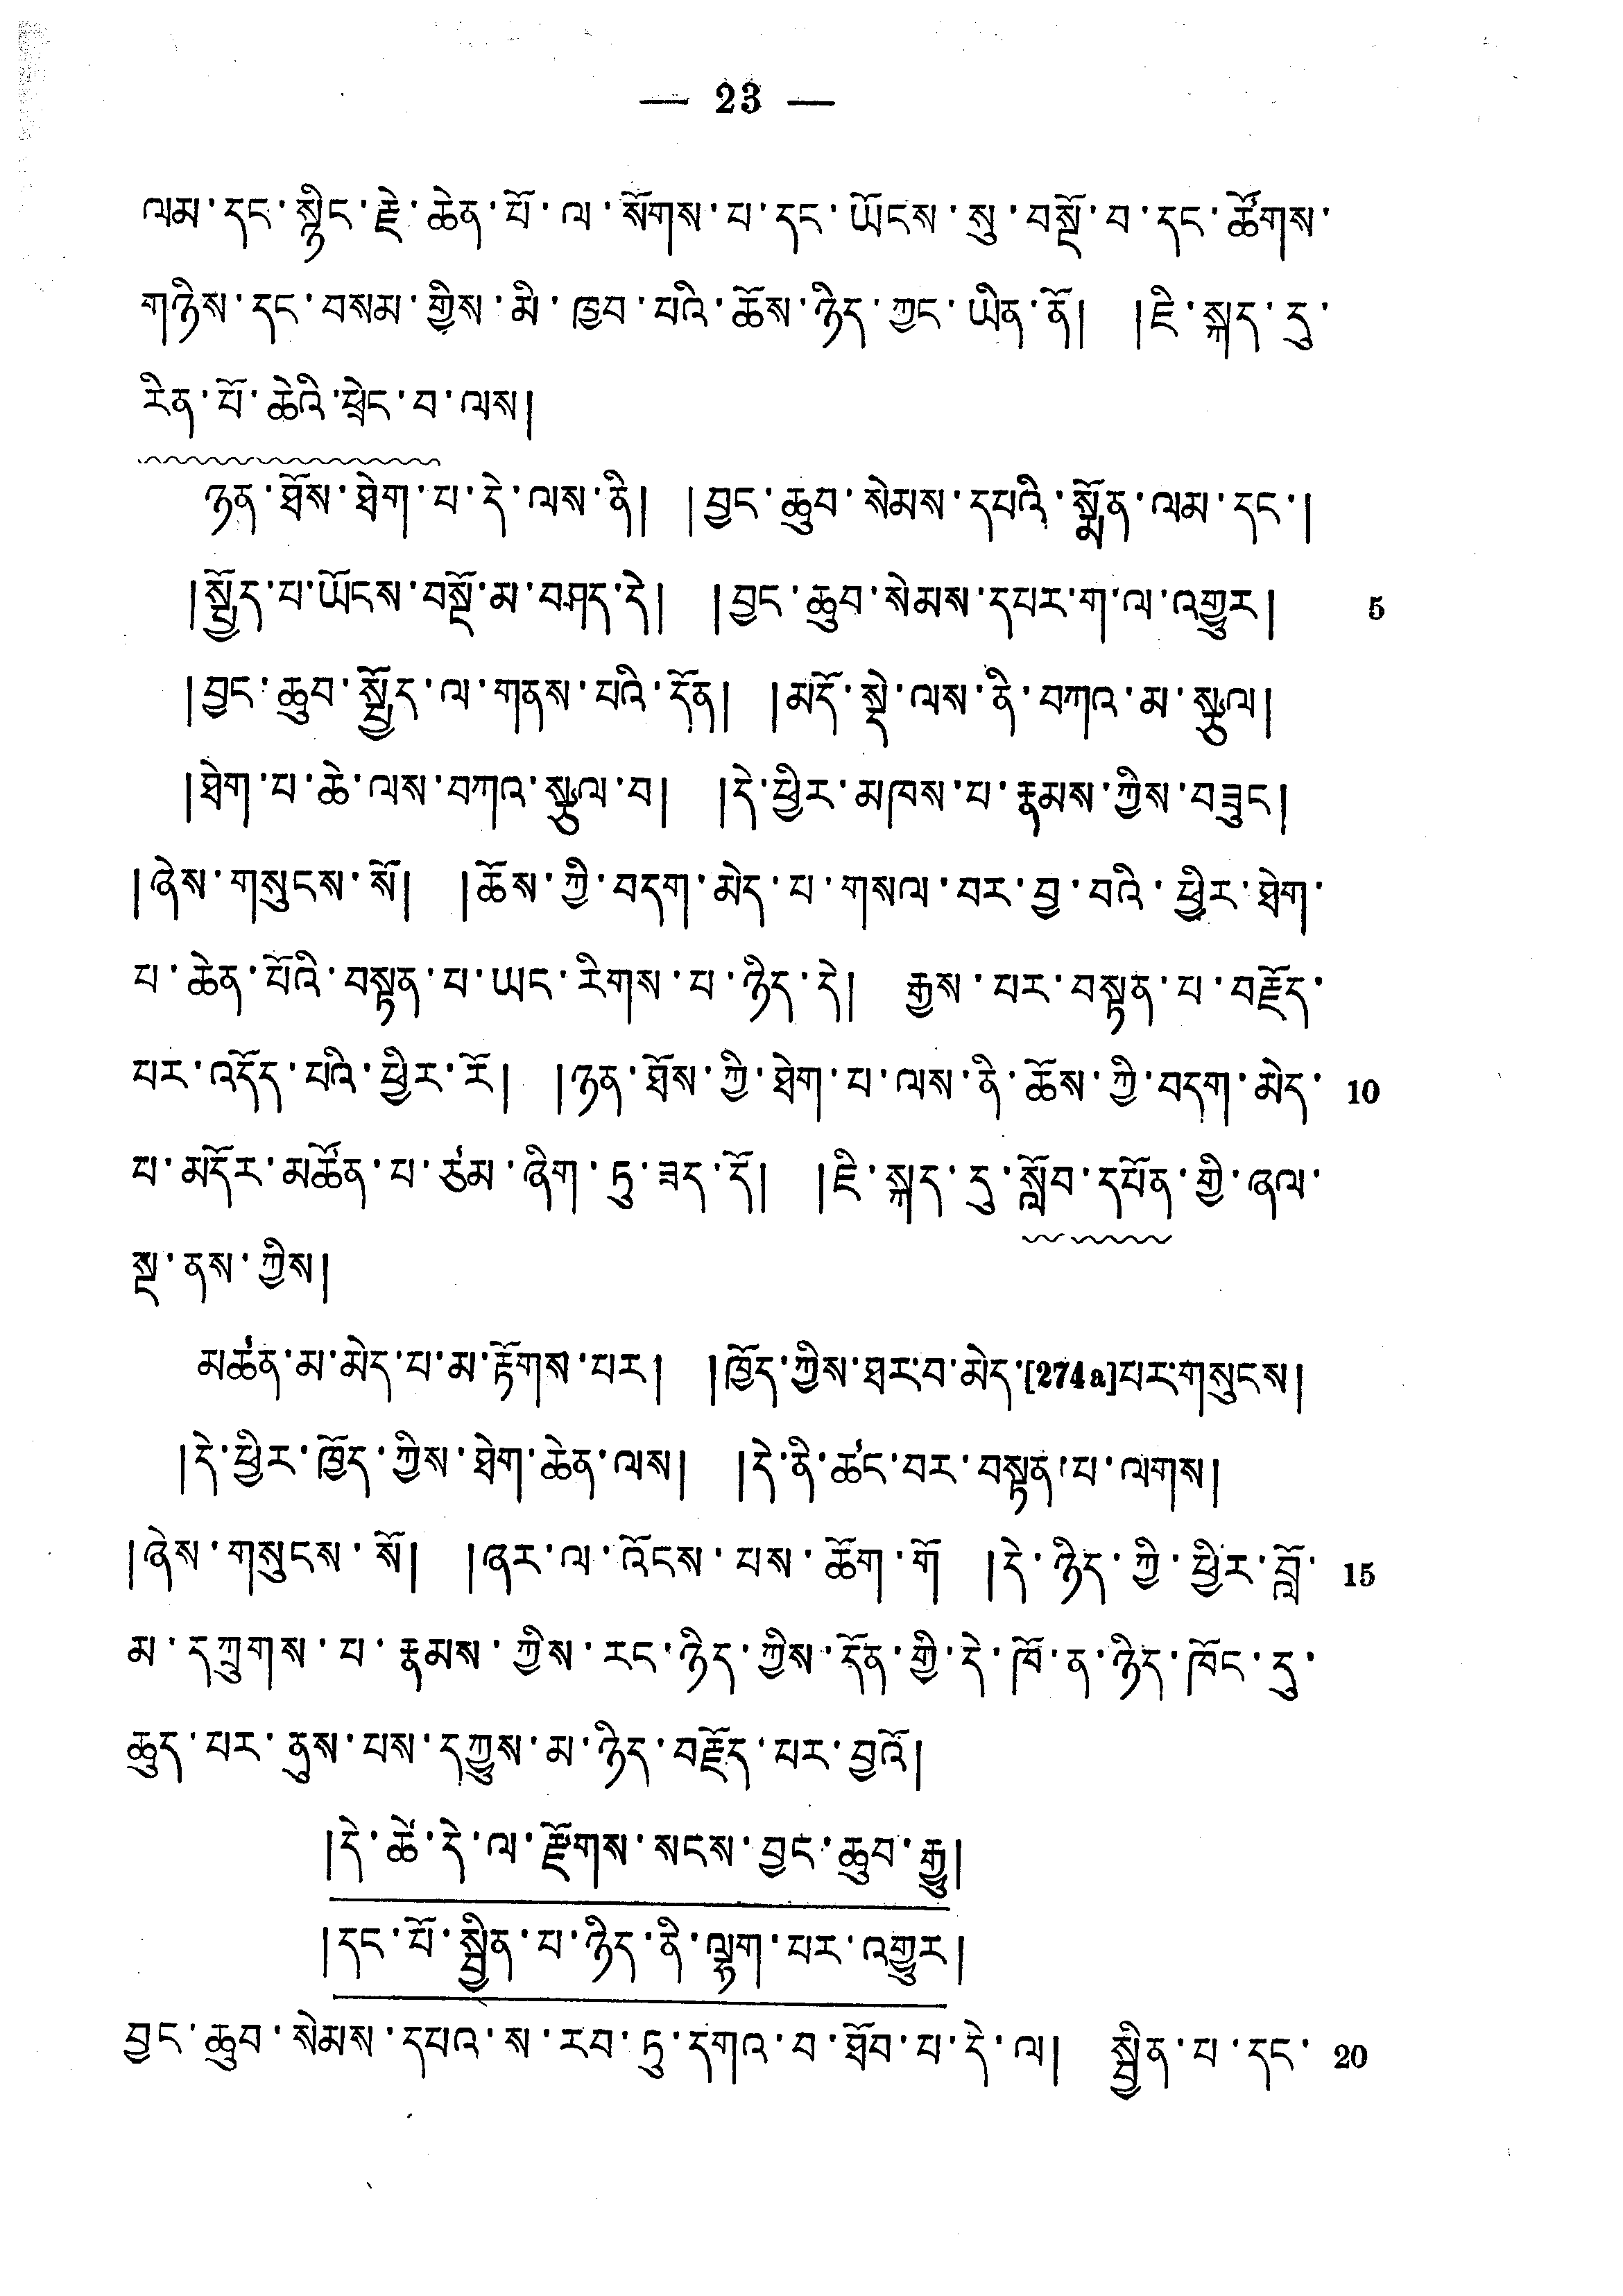 — 23 —
ལམ་དང་སྙིང་རྗེ་ཆེན་པོ་ལ་སོགས་པ་དང་ཡོངས་སུ་བསྔོ་བ་དང་ཚོགས་
གཉིས་དང་བསམ་གྱིས་མི་ཁྱབ་པའི་ཆོས་ཉིད་ཀྱང་ཡིན་ནོ། །ཇི་སྐད་དུ་
རིན་པོ་ཆེའི་ཕྲེང་བ་ལས།
ཉན་ཐོས་ཐེག་པ་དེ་ལས་ནི། །བྱང་ཆུབ་སེམས་དཔའི་སྨོན་ལམ་དང་།
།སྤྱོད་པ་ཡོངས་བསྔོ་མ་བཤད་དེ། །བྱང་ཆུབ་སེམས་དཔར་ག་ལ་འགྱུར། 5
།བྱང་ཆུབ་སྤྱོད་ལ་གནས་པའི་དོན། །མདོ་སྡེ་ལས་ནི་བཀའ་མ་སྩལ།
།ཐེག་པ་ཆེ་ལས་བཀའ་སྩལ་བ། །དེ་ཕྱིར་མཁས་པ་རྣམས་ཀྱིས་བཟུང།
།ཞེས་གསུངས་སོ། །ཆོས་ཀྱི་བདག་མེད་པ་གསལ་བར་བྱ་བའི་ཕྱིར་ཐེག་
པ་ཆེན་པོའི་བསྟན་པ་ཡང་རིགས་པ་ཉིད་དེ། རྒྱས་པར་བསྟན་པ་བརྗོད་
པར་འདོད་པའི་ཕྱིར་རོ། །ཉན་ཐོས་ཀྱི་ཐེག་པ་ལས་ནི་ཆོས་ཀྱི་བདག་མེད་ 10
པ་མདོར་མཚོན་པ་ཙམ་ཞིག་ཏུ་ཟད་དོ། །ཇི་སྐད་དུ་སློབ་དཔོན་གྱི་ཞལ་
སྔ་ནས་ཀྱིས།
མཚན་མ་མེད་པ་མ་རྟོགས་པར། །ཁྱོད་ཀྱིས་ཐར་བ་མེད་[274a]པར་གསུངས།
།དེ་ཕྱིར་ཁྱོད་ཀྱིས་ཐེག་ཆེན་ལས། །དེ་ནི་ཚང་བར་བསྟན་པ་ལགས།
།ཞེས་གསུངས་སོ། །ཞར་ལ་འོངས་པས་ཆོག་གོ །དེ་ཉིད་ཀྱི་ཕྱིར་བློ་ 15
མ་དཀྲུགས་པ་རྣམས་ཀྱིས་རང་ཉིད་ཀྱིས་དོན་གྱི་དེ་ཁོ་ན་ཉིད་ཁོང་དུ་
ཆུད་པར་ནུས་པས་དཀྱུས་མ་ཉིད་བརྗོད་པར་བྱའོ།
།དེ་ཚེ་དེ་ལ་རྫོགས་སངས་བྱང་ཆུབ་རྒྱུ།
།དང་པོ་སྦྱིན་པ་ཉིད་ནི་ལྷག་པར་འགྱུར།
བྱང་ཆུབ་སེམས་དཔའ་ས་རབ་ཏུ་དགའ་བ་ཐོབ་པ་དེ་ལ། སྦྱིན་པ་དང་ 20